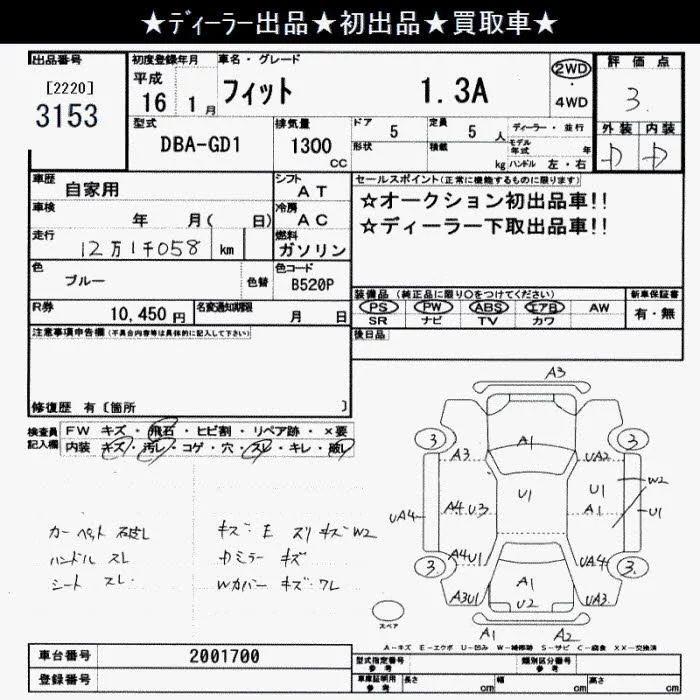 ★ディーラー出品★初出品★買取車★
出品番号 初度登録年月 車名・グレード 2WD 評価点
[2220] 平成 フィット 1.3A ・ 3.
3153 16 1月 4WD
外装 内装
型式 排気量 ドア 5 定員 5 人 ディーラー・並行
DBA-GD1 1300 CC 形状 積載 kg モデル年式 年
ハンドル 左・右
D D
車歴 自家用 シフト AT セールスポイント(正常に機能するものに限ります)
車検 年 月( 日) 冷房 AC ☆オークション初出品車!!
走行 12万1千058 km 燃料 ガソリン ☆ディーラー下取出品車!!
色 ブルー 色替 色コード B520P
装備品(純正品に限り○をつけてください) 新車保証書
R券 10,450円 名変通知期限 月 日 PS PW ABS エアB AW 有・無
SR ナビ TV カワ
注意事項申告欄(不具合内容等は具体的に記入して下さい) 後日品
修復歴 有〔箇所 〕
検査員記入欄 FW キズ・飛石・ヒビ割・リペア跡・×要
内装 キズ・汚レ・コゲ・穴・スレ・キレ・破レ
A3
3 A1 3
A3 UA2
U1 U1 W2
UA4 A4 U3 A1 U1
A4U1 UA4
3 A1 3.
A3U1 U2 UA3
A1 A2
カーペット 破レ キズ:E スリキズW2
ハンドル スレ Dミラー キズ
シート スレ Wカバー キズ・ワレ
スペア
A-キズ E-エクボ U-凹み W-補修跡 S-サビ C-腐食 XX-交換済
車台番号 2001700 型式指定番号 参考 類別区分番号 参考
登録番号 車庫証明用 参考 長さ cm 幅 cm 高さ cm